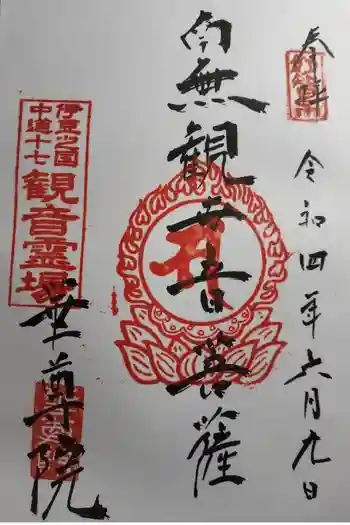 奉拝
令和四年六月九日
南無観世音菩薩
伊豆乃国
中道十七
観音霊場
尊院